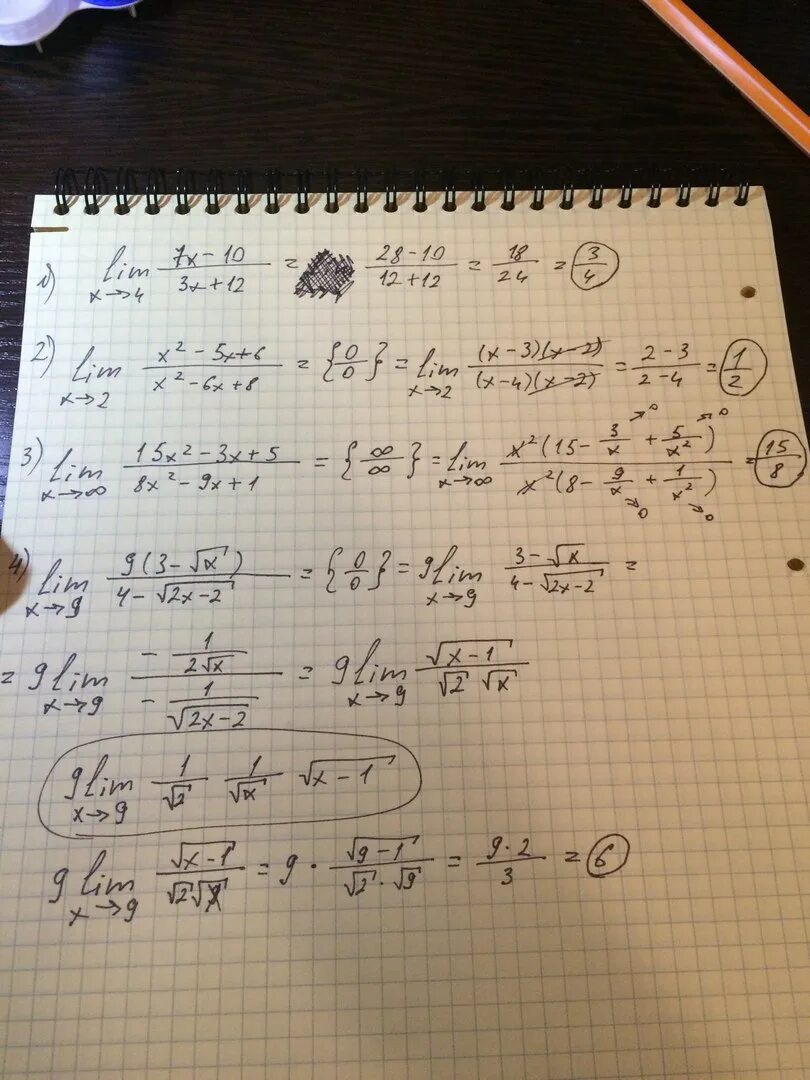 1) lim x→4 (7x-10)/(3x+12) = (28-10)/(12+12) = 18/24 = 3/4
2) lim x→2 (x²-5x+6)/(x²-6x+8) = {0/0} = lim x→2 ((x-3)(x-2))/((x-4)(x-2)) = (2-3)/(2-4) = 1/2
3) lim x→∞ (15x²-3x+5)/(8x²-9x+1) = {∞/∞} = lim x→∞ (x²(15 - 3/x→0 + 5/x²→0))/(x²(8 - 9/x→0 + 1/x²→0)) = 15/8
4) lim x→9 (9(3-√x))/(4-√(2x-2)) = {0/0} = 9 lim x→9 (3-√x)/(4-√(2x-2)) =
= 9 lim x→9 (-1/(2√x))/(-1/√(2x-2)) = 9 lim x→9 √(x-1)/(√2 √x)
9 lim x→9 1/√2 1/√x √(x-1)
9 lim x→9 √(x-1)/(√2√x) = 9 · √(9-1)/(√2 · √9) = (9·2)/3 = 6